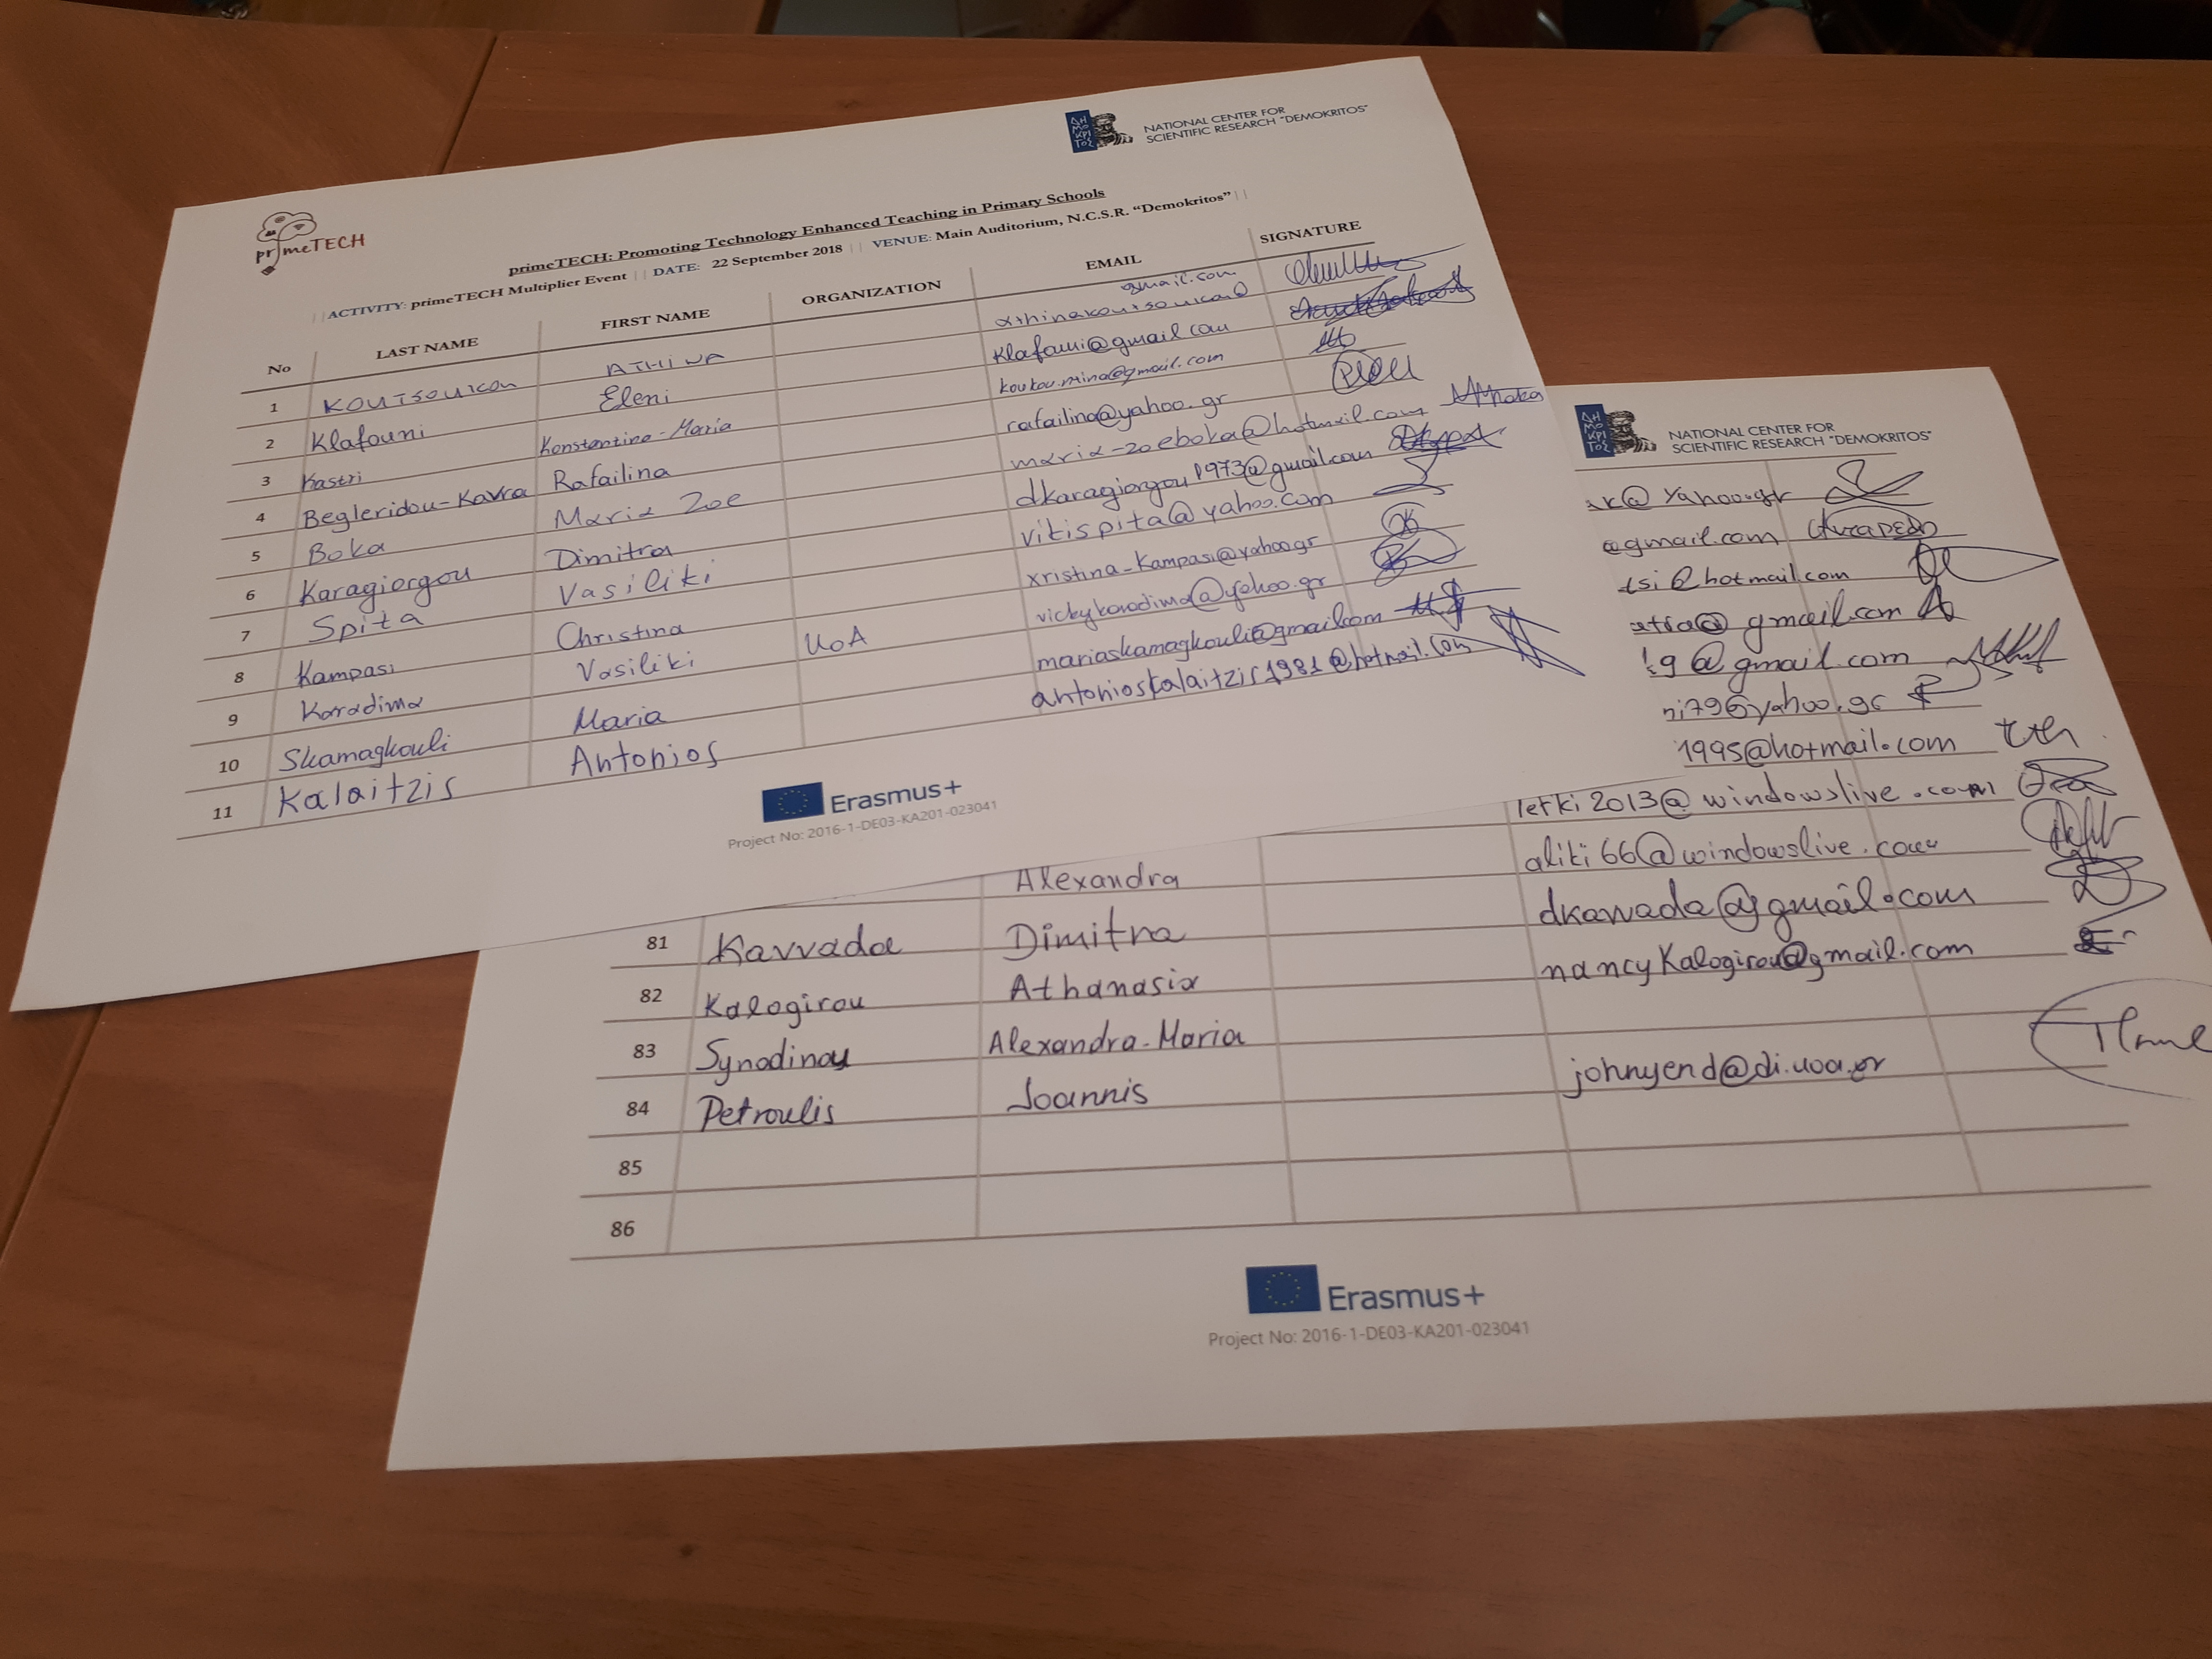 ΔΗ
ΜΟ
ΚΡΙ
ΤΟΣ
NATIONAL CENTER FOR
SCIENTIFIC RESEARCH "DEMOKRITOS"
primeTECH
primeTECH: Promoting Technology Enhanced Teaching in Primary Schools
|| ACTIVITY: primeTECH Multiplier Event || DATE: 22 September 2018 || VENUE: Main Auditorium, N.C.S.R. "Demokritos" ||
No LAST NAME FIRST NAME ORGANIZATION EMAIL SIGNATURE
1 ATHINA gmail.com
2 Klafouni Eleni klafouni@gmail.com
3 Kastri Konstantina-Maria koukou.mina@gmail.com
4 Begleridou-Kavra Rafailina rafailina@yahoo.gr
5 Boka Maria Zoe maria-zoeboka@hotmail.com
6 Karagiorgou Dimitra dkaragiorgou1973@gmail.com
7 Spita Vasiliki vikispita@yahoo.com
8 Kampasi Christina UoA xristina-kampasi@yahoo.gr
9 Karadima Vasiliki vickykaradima@yahoo.gr
10 Skamagkouli Maria mariaskamagkouli@gmail.com
11 Kalaitzis Antonios antonioskalaitzis1981@hotmail.com
Erasmus+
Project No: 2016-1-DE03-KA201-023041
ΔΗ
ΜΟ
ΚΡΙ
ΤΟΣ
NATIONAL CENTER FOR
SCIENTIFIC RESEARCH "DEMOKRITOS"
@yahoo.gr
@gmail.com
tsi@hotmail.com
@gmail.com
g@gmail.com
yahoo.gr
1995@hotmail.com
2013@windowslive.com
Alexandra aliki66@windowslive.com
81 Kavvada Dimitra dkavvada@gmail.com
82 Kalogirou Athanasia nancykalogirou@gmail.com
83 Synodinou Alexandra-Maria
84 Petroulis Ioannis johnyend@di.uoa.gr
85
86
Erasmus+
Project No: 2016-1-DE03-KA201-023041